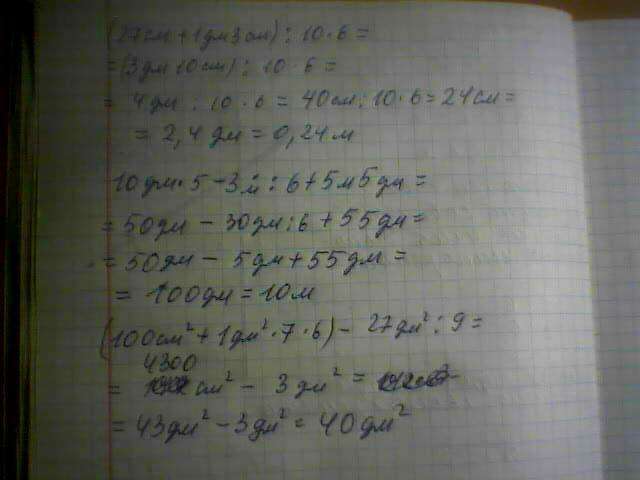 (27см + 1дм 3см) : 10 · 6 =
= (3дм 10см) : 10 · 6 =
= 4дм : 10 · 6 = 40см : 10 · 6 = 24см =
= 2,4 дм = 0,24 м
10дм · 5 - 3м : 6 + 5м 5дм =
= 50дм - 30дм : 6 + 55дм =
= 50дм - 5дм + 55дм =
= 100дм = 10м
(100см² + 1дм² · 7 · 6) - 27дм² : 9 =
4300
= см² - 3дм² =
= 43дм² - 3дм² = 40дм²